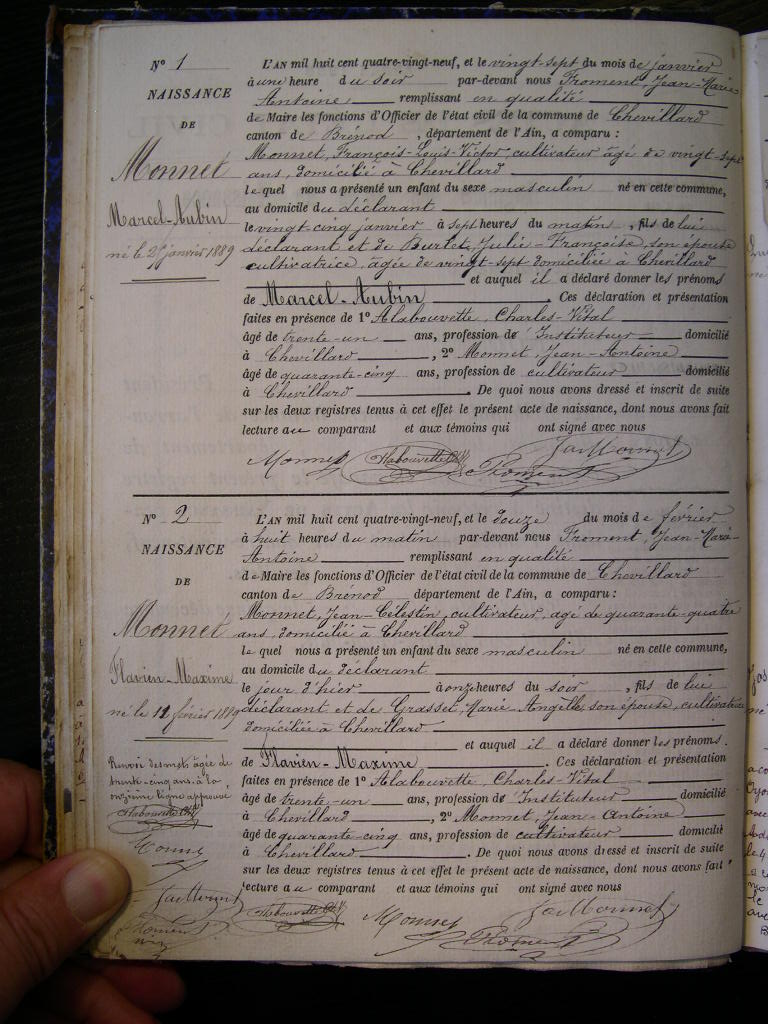 N° 1
NAISSANCE
DE
Monnet
Marcel-Aubin
né le 25 janvier 1889
L'AN mil huit cent quatre-vingt-neuf, et le vingt-sept du mois de janvier
à une heure du soir par-devant nous Froment, Jean-Marie
Antoine remplissant en qualité
de Maire les fonctions d'Officier de l'état civil de la commune de Chevillard
canton de Brénod, département de l'Ain, a comparu :
Monnet, François-Louis-Victor, cultivateur âgé de vingt-sept
ans, domicilié à Chevillard
lequel nous a présenté un enfant du sexe masculin né en cette commune,
au domicile du déclarant
le vingt-cinq janvier à sept heures du matin, fils de lui
déclarant et de Burlet, Julie-Françoise, son épouse
cultivatrice, âgée de vingt-sept domiciliée à Chevillard
et auquel il a déclaré donner les prénoms
de Marcel-Aubin. Ces déclaration et présentation
faites en présence de 1° Alabouvette, Charles-Vital
âgé de trente-un ans, profession d'Instituteur domicilié
à Chevillard, 2° Monnet, Jean-Antoine
âgé de quarante-cinq ans, profession de cultivateur domicilié
à Chevillard. De quoi nous avons dressé et inscrit de suite
sur les deux registres tenus à cet effet le présent acte de naissance, dont nous avons fait
lecture au comparant et aux témoins qui ont signé avec nous
Monnet Alabouvette Ch. Froment Jn Monnet
N° 2
NAISSANCE
DE
Monnet
Flavien-Maxime
né le 11 février 1889
L'AN mil huit cent quatre-vingt-neuf, et le douze du mois de février
à huit heures du matin par-devant nous Froment, Jean-Marie
Antoine remplissant en qualité
de Maire les fonctions d'Officier de l'état civil de la commune de Chevillard
canton de Brénod département de l'Ain, a comparu :
Monnet, Jean-Célestin, cultivateur, agé de quarante-quatre
ans, domicilié à Chevillard
lequel nous a présenté un enfant du sexe masculin né en cette commune,
au domicile du déclarant
le jour d'hier à onze heures du soir, fils de lui
déclarant et de Grasset, Marie Angèle, son épouse, cultivatrice
domiciliée à Chevillard
et auquel il a déclaré donner les prénoms
de Flavien-Maxime. Ces déclaration et présentation
faites en présence de 1° Alabouvette, Charles-Vital
âgé de trente-un ans, profession d'Instituteur domicilié
à Chevillard, 2° Monnet, Jean-Antoine
âgé de quarante-cinq ans, profession de cultivateur domicilié
à Chevillard. De quoi nous avons dressé et inscrit de suite
sur les deux registres tenus à cet effet le présent acte de naissance, dont nous avons fait
lecture au comparant et aux témoins qui ont signé avec nous
Renvoi des mots âgée de
trente-cinq ans à la
onzième ligne approuvé
Alabouvette Ch.
Monnet
Jn Monnet
Froment
Alabouvette Ch. Monnet Froment Jn Monnet